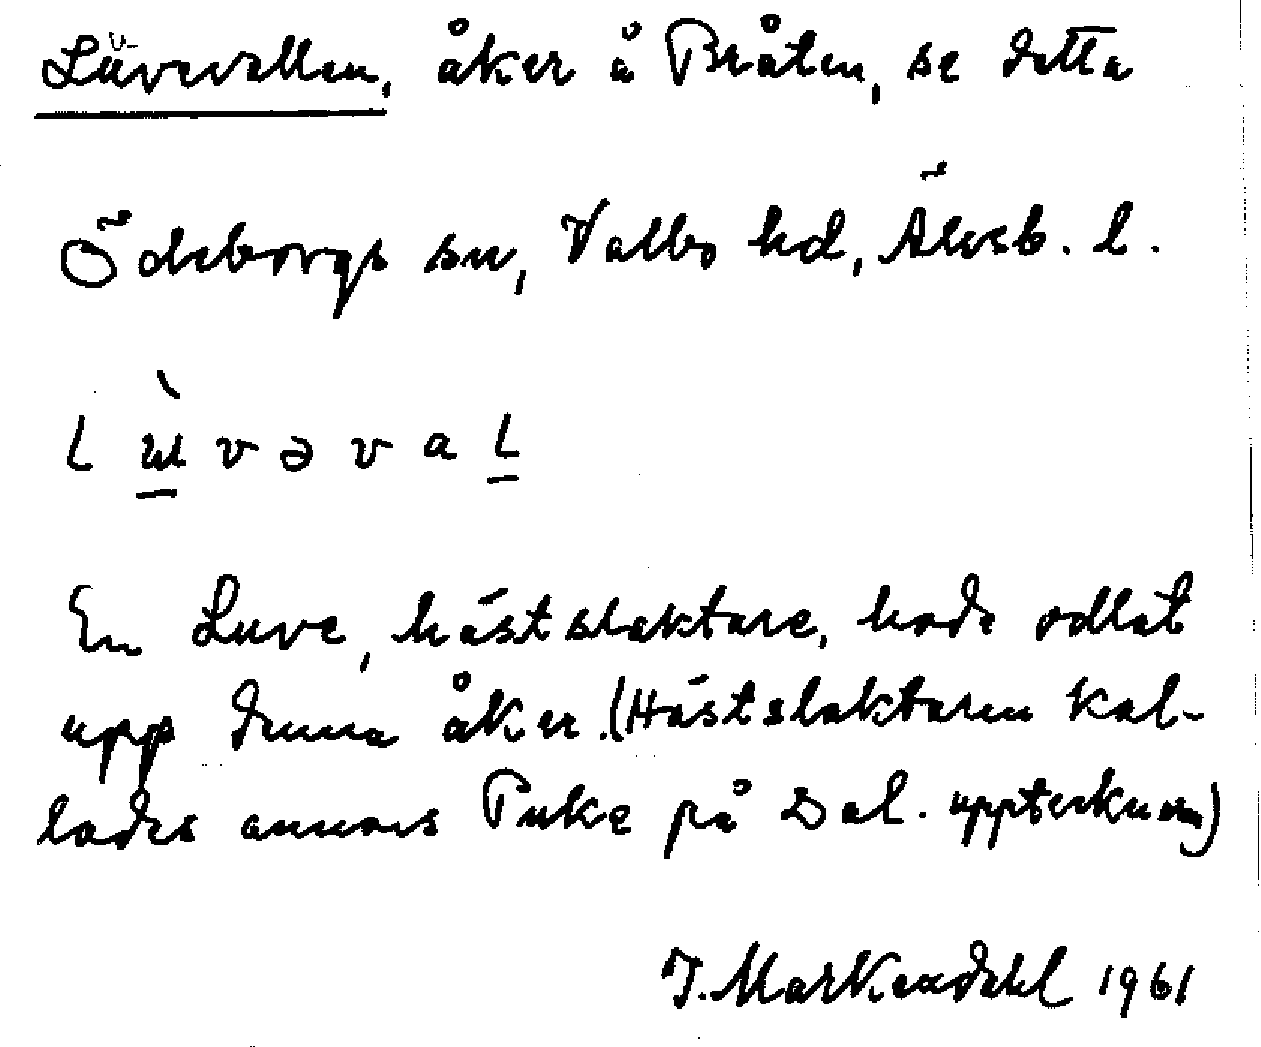 Luvevallen, åker å Bråten, se detta
Ödeborgs sn, Valbo hd, Älvsb. l.
l ɯ̀ v ə v a l
En Luve, hästslaktare, hade odlat
upp denna åker. (Hästslaktaren kal-
lades annars Puke på Dal.
J. Markendahl 1961